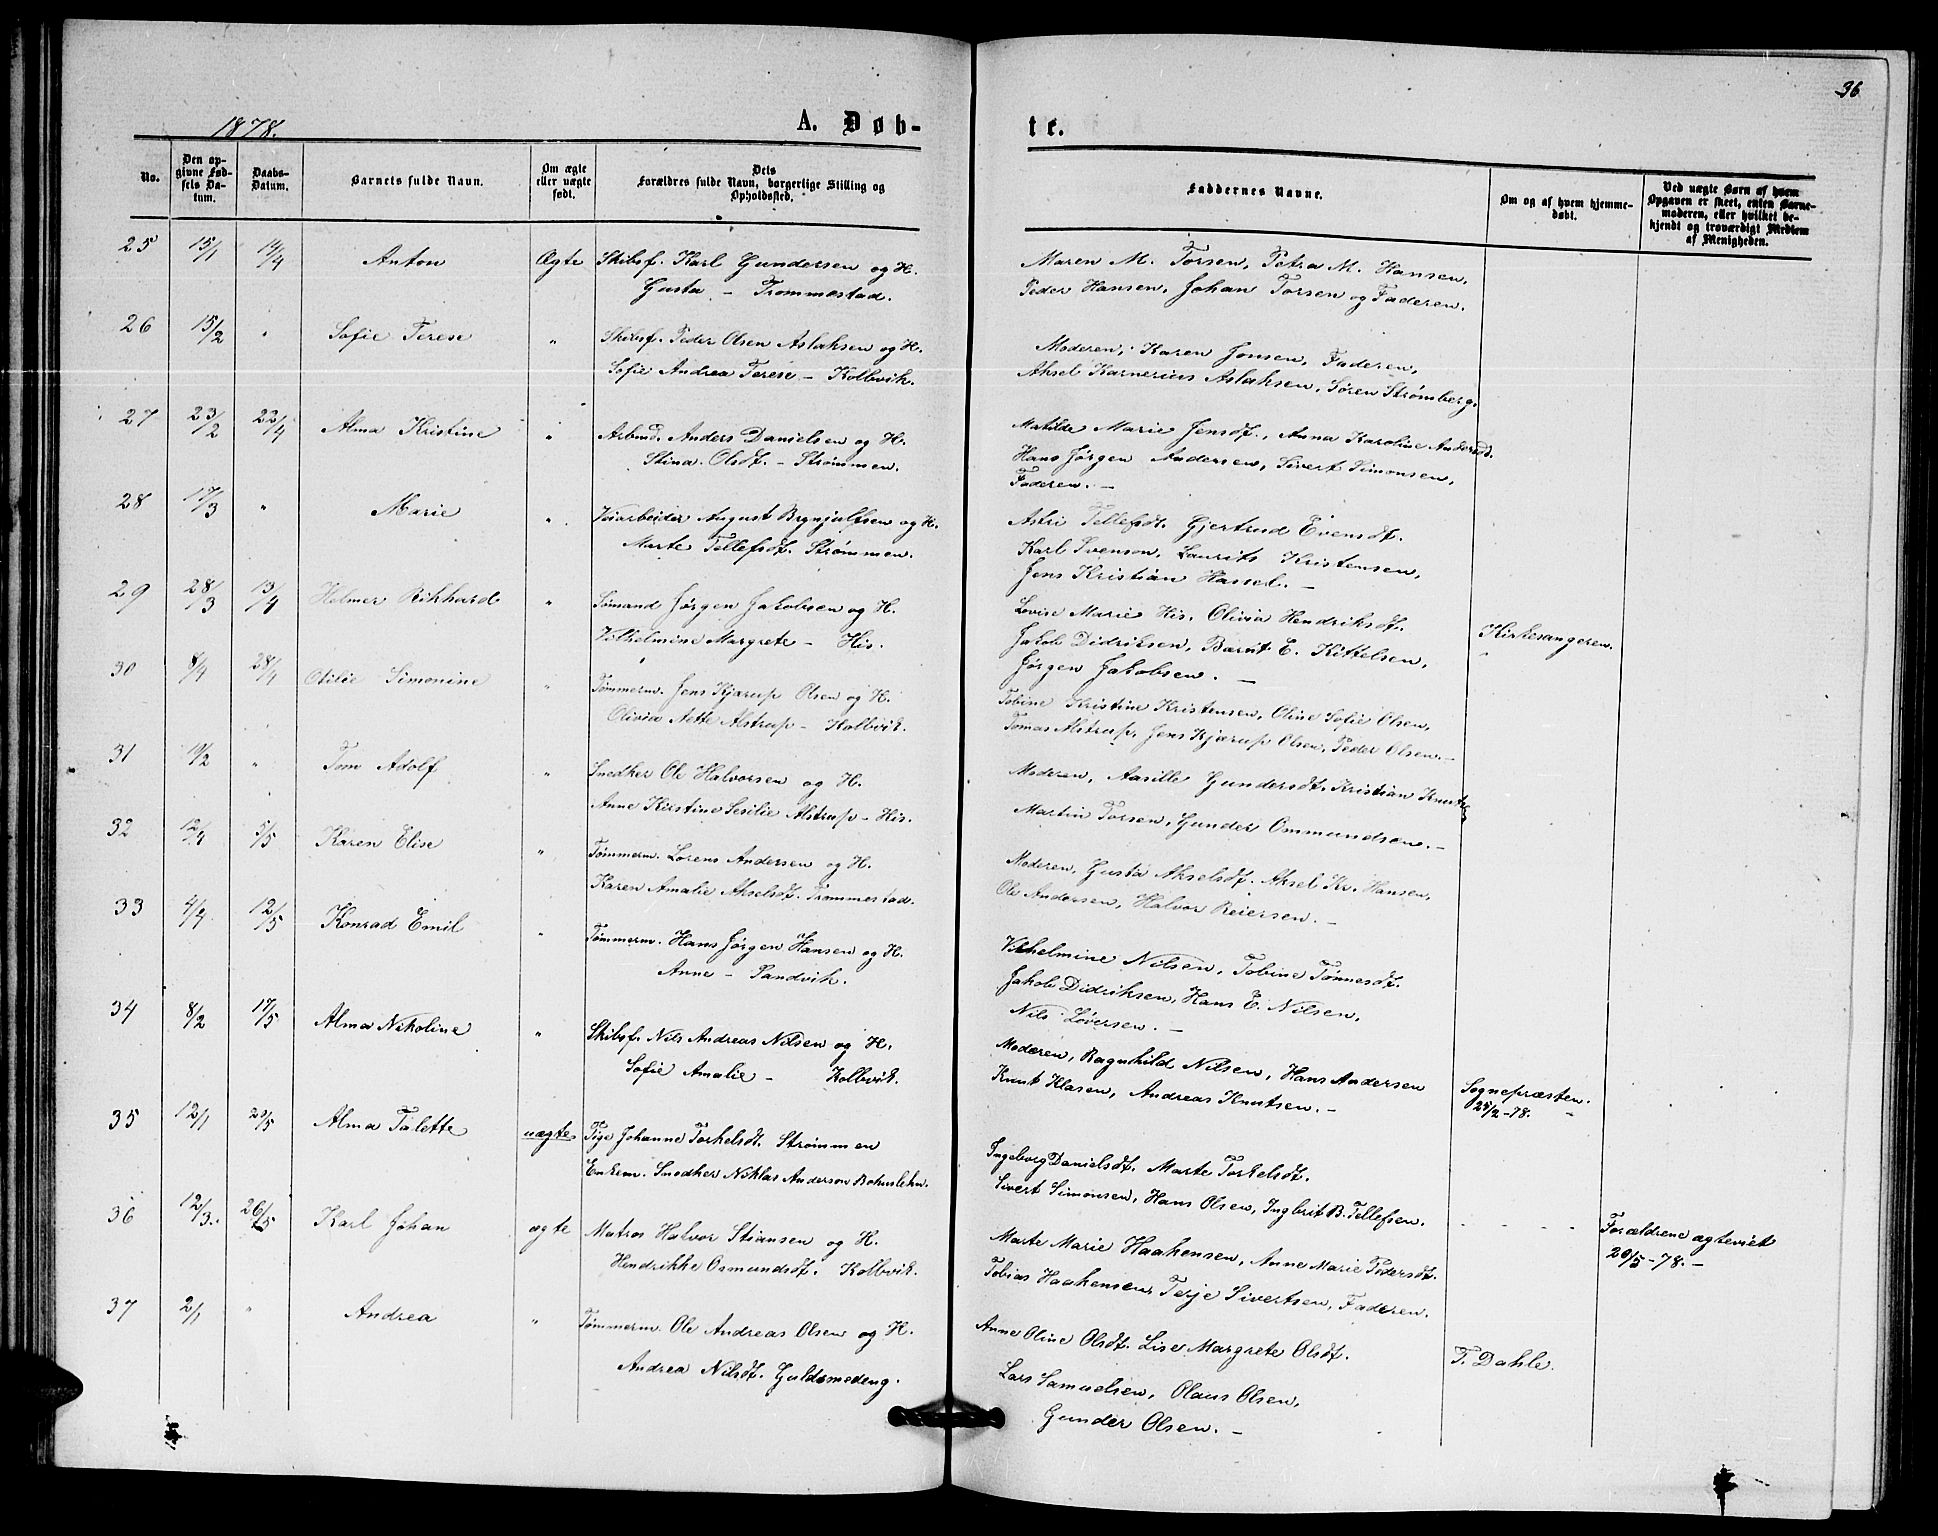 36
1878.
A. Døb-
te.
No.
Den op-
givne Fød-
sels Da-
tum.
Daabs-
Datum.
Barnets fulde Navn.
Om ægte
eller uægte
født.
Dets
Forældres fulde Navn, borgerlige Stilling og
Opholdssted.
Faddernes Navne.
Om og af hvem hjemme-
døbt.
Ved uægte Børn af hvem
Opgaven er skeet, enten Barne-
moderen, eller hvilket be-
kjendt og troværdigt Medlem
af Menigheden.
25 15/1 14/4 Anton Ægte Skibsf. Karl Gundersen og H.
Gusta - Trommestad.
Maren M. Torsen, Petra M. Hansen,
Peder Hansen, Johan Torsen og Faderen.
26 15/2 " Sofie Terese " Skibsf. Peder Olsen Aslaksen og H.
Sofie Andrea Terese - Kolbvik.
Moderen, Karen Jonsen, Faderen,
Aksel Karnerius Aslaksen, Søren Strømberg.
27 23/2 22/4 Alma Kristine " Arbmd. Anders Danielsen og H.
Stina Olsdt. - Strømmen.
Matilde Marie Jensdt., Anna Karoline Andersd.
Hans Jørgen Andersen, Sivert Simonsen,
Faderen. -
28 17/3 " Marie " Veiarbeider August Brynjulfsen og H.
Marte Tellefsdt. Strømmen.
Astri Tellefsdt. Gjertrud Evensdt.
Karl Svenson, Laurits Kristensen,
Jens Kristian Hassel. -
29 28/3 13/4 Helmer Rikhard " Sømand Jørgen Jakobsen og H.
Vilhelmine Margrete - His.
Lovise Marie His, Olivia Hendriksdt.
Jakob Didriksen, Barnt E. Kittelsen,
Jørgen Jakobsen. -
Kirkesangeren.
30 8/4 28/4 Otilie Simonine " Tømmerm. Jens Kjærup Olsen og H.
Olivia Aette Alstrup - Kolbvik.
Tobine Kristine Kristensen, Oline Sofie Olsen,
Tomas Alstrup, Jens Kjærup Olsen, Peder Olsen. -
31 " Tom Adolf " Snedker Ole Halvorsen og H.
Anne Kirstine Sesilie Alstrup - His.
Moderen, Aasille Gundersdt. Kristian Knutsen
Martin Torsen, Gunder Ommundsen. -
32 12/4 5/5 Karen Elise " Tømmerm. Lorens Andersen og H.
Karen Amalie Akselsdt. Trommestad.
Moderen, Gusta Akselsdt. Aksel Kr. Hansen,
Ole Andersen, Halvor Reiersen. -
33 4/4 12/5 Konrad Emil " Tømmerm. Hans Jørgen Hansen og H.
Anne - Sandvik.
Vilhelmine Nilsen, Tobine Tønnesdt.
Jakob Didriksen, Hans E. Nilsen,
Nils Løversen. -
34 8/2 17/5 Alma Nikoline " Skibsf. Nils Andreas Nilsen og H.
Sofie Amalie - Kolbvik.
Moderen, Ragnhild Nilsen, Hans Andersen
Knut Klasen, Andreas Knutsen. -
Sognepræsten.
25/2-78.
35 12/1 Alma Talette uægte Pige Johanne Torkelsdt. Strømmen
Enkem. Snedker Niklas Anderson Bohuslehn.
Ingeborg Danielsdt. Marte Torkelsdt.
Sivert Simonsen, Hans Olsen, Ingbrit B. Tellefsen.
36 12/3. 26/5 Karl Johan ægte Matros Halvor Stiansen og H.
Hendrikke Osmundsdt. Kolbvik.
Marte Marie Haakensen, Anne Marie Pedersdt.
Tobias Haakensen, Terje Sivertsen, Faderen.
Forældrene ægteviet
20/5-78. -
37 2/1 " Andrea " Tømmerm. Ole Andreas Olsen og H.
Andrea Nilsdt. Guldsmedeng.
Anne Oline Olsdt. Lise Margrete Olsdt.
Lars Samuelsen, Olaus Olsen,
Gunder Olsen. -
T. Dahle.